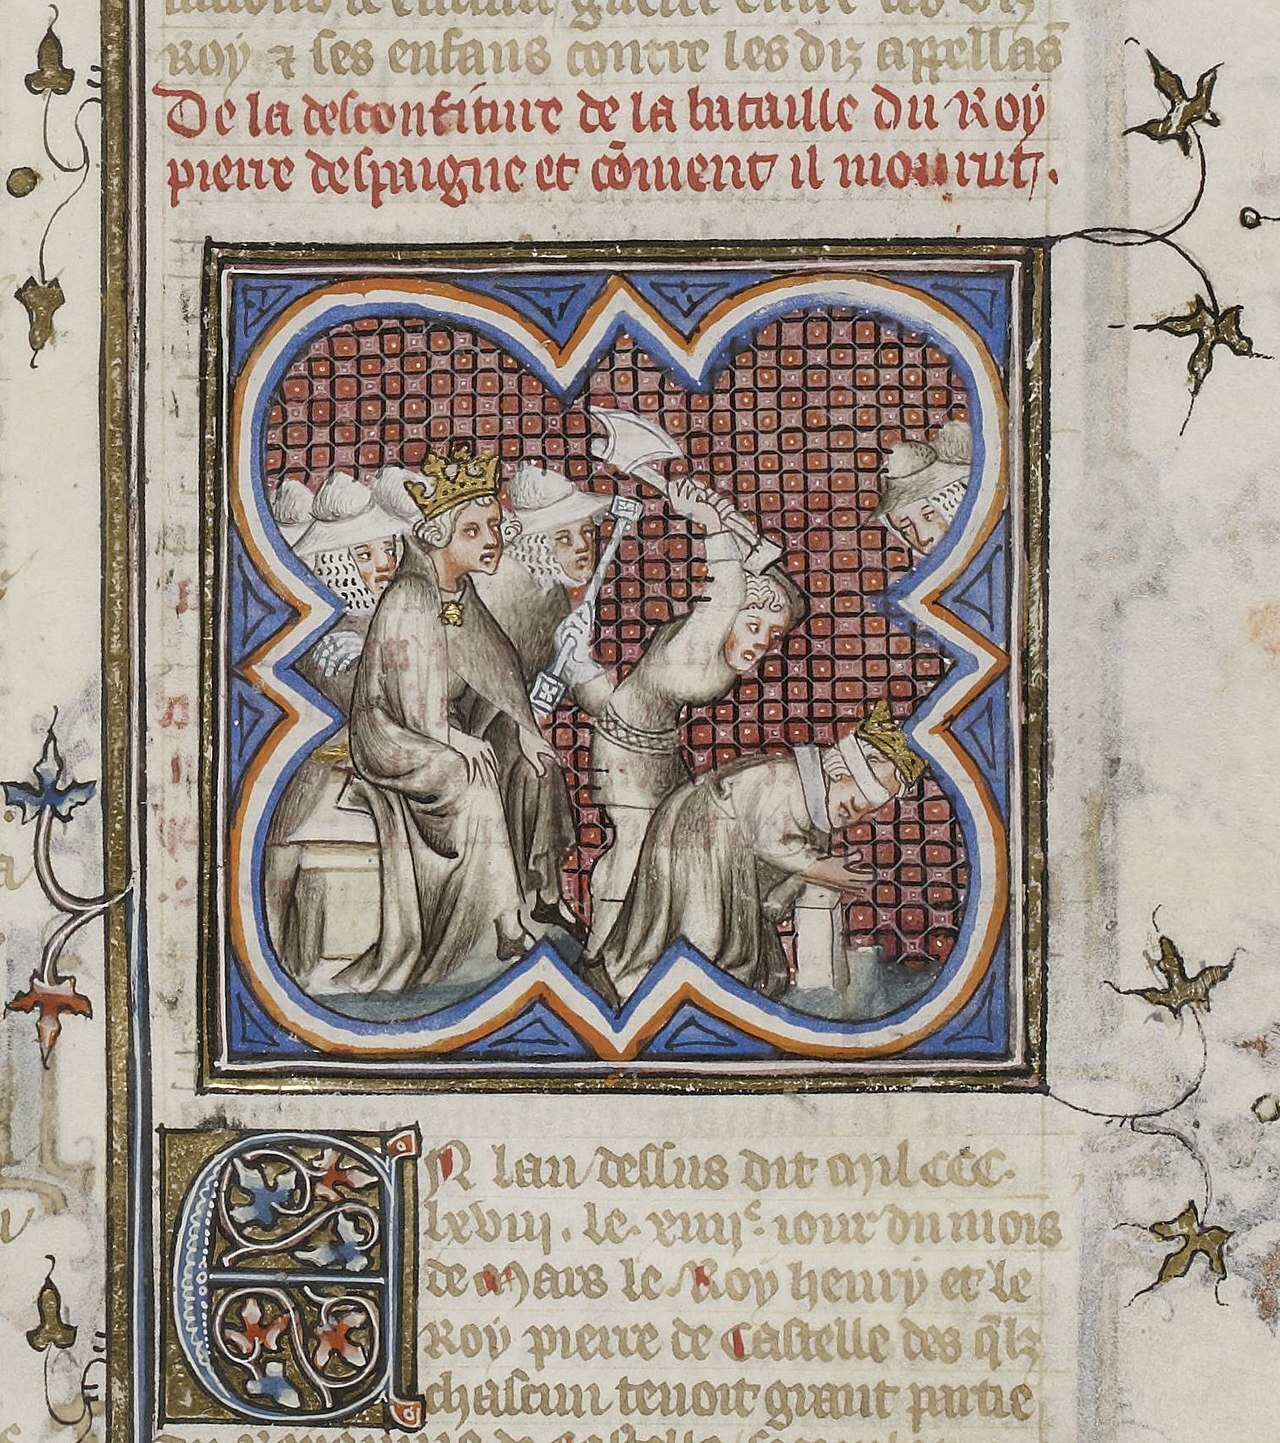 Roy & ses enfans contre les diz appellãs
De la desconfiture de la bataille du Roy
pierre despaigne et cõment il mourut.
EN lan dessus dit Mil CCC.
lxviij. le xiiijᵉ. iour du mois
de Mars le Roy henry et le
Roy pierre de Castelle des q̃lz
chascun tenoit grant partie